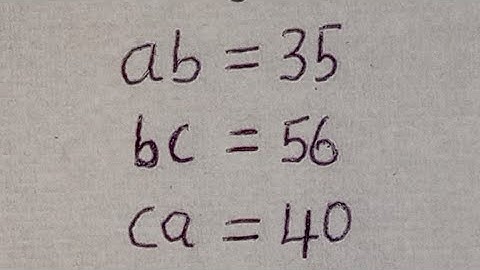 ab = 35
bc = 56
ca = 40